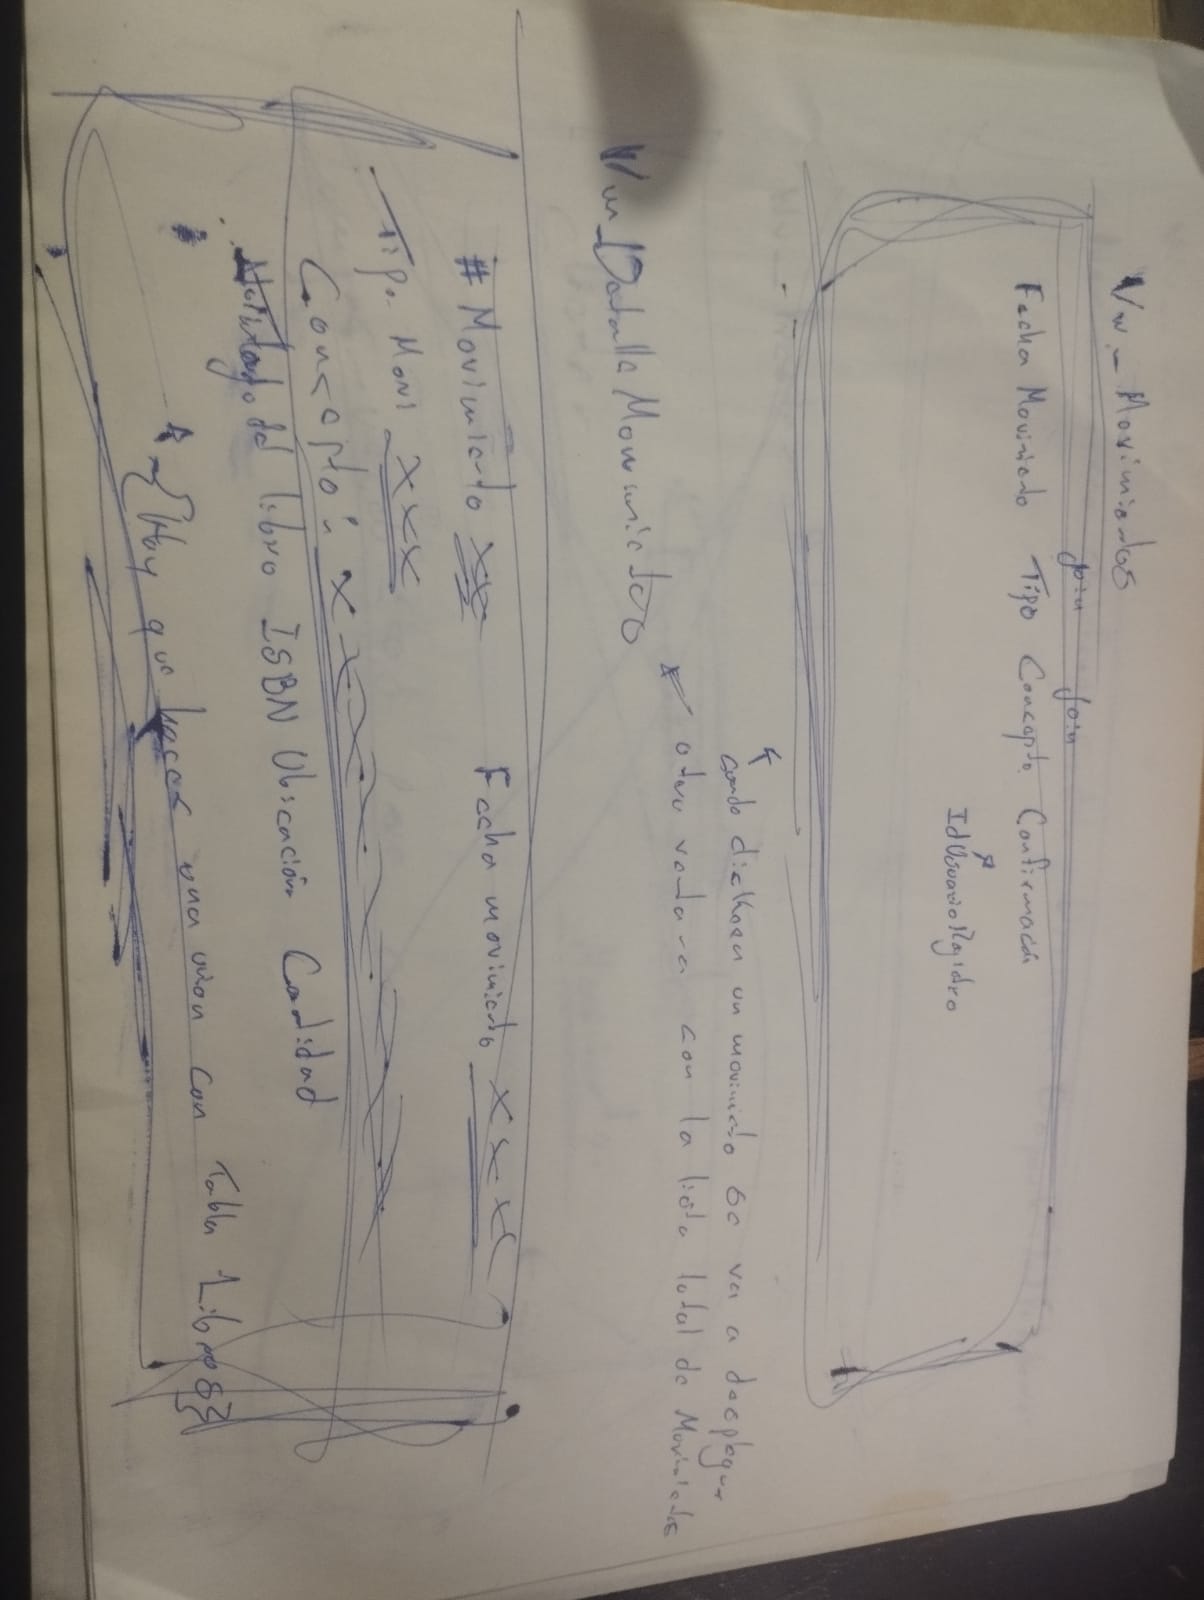 Vw_Movimientos
Join Join
Fecha Movimiento Tipo Concepto Confirmación
IdUsuarioRegistro
cuando clickeen un movimiento se va a desplegar
otra ventana con la lista total de Movimientos
Vw_DetalleMovimientos
# Movimiento xx Fecha movimiento xxxx
Tipo Movi xxx
Concepto: x
del libro ISBN Ubicación Cantidad
{Hay que hacer una union con Tabla Libros}